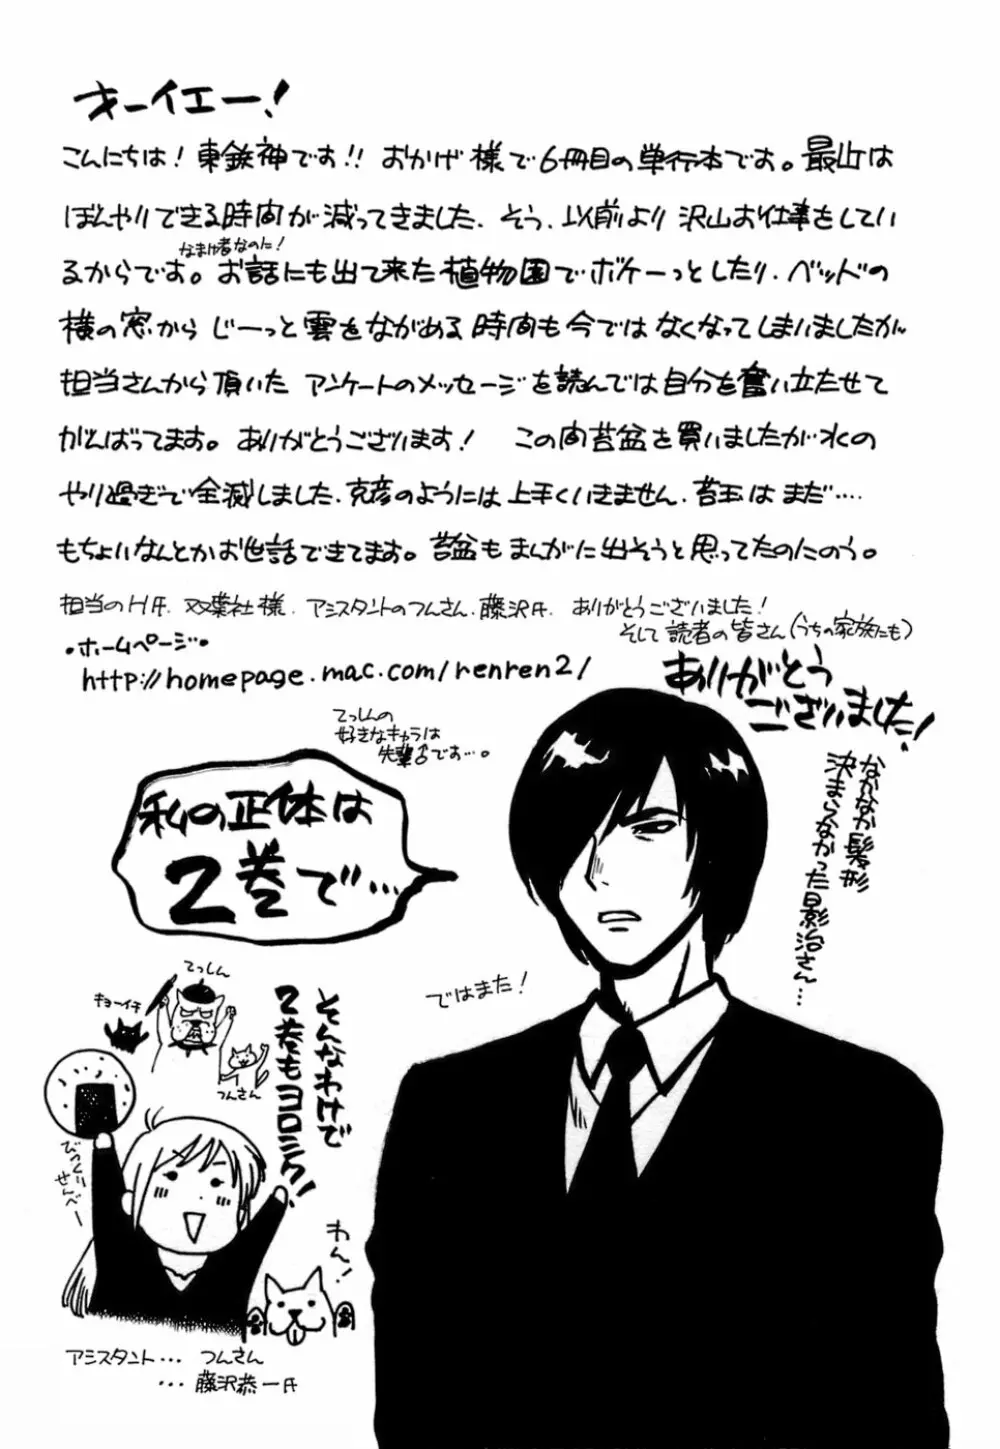 オーイエー!
こんにちは!東鉄神です!!おかげ様で6冊目の単行本です。最近は
ぼんやりできる時間が減ってきました、そう、以前より沢山お仕事をしてい
なまけ者なのに!
るからです。お話にも出て来た植物園でボケーっとしたり、ベッドの
横の窓からじーっと雲をながめる時間も今ではなくなってしまいましたが
担当さんから頂いたアンケートのメッセージを読んでは自分を奮い立たせて
がんばってます。ありがとうございます! この間苔盆を買いましたが水の
やり過ぎで全滅しました、克彦のようには上手くいきません、苔玉はまだ……
もちょいなんとかお世話できてます。苔盆もまんがに出そうと思ってたのにのう。
担当のH氏、双葉社様、アシスタントのつんさん、藤沢氏、ありがとうございました!
そして読者の皆さん(うちの家族にも)
ありがとう
ございました!
・ホームページ・
http://homepage.mac.com/renren2/
てっしんの
好きなキャラは
先輩♂です…。
なかなか髪形
決まらなかった影治さん…
私の正体は
2巻で…
ではまた!
てっしん
キョーイチ
つんさん
そんなわけで
2巻もヨロシク!
びっくり
せんべー
わん!
アシスタント… つんさん
… 藤沢恭一氏